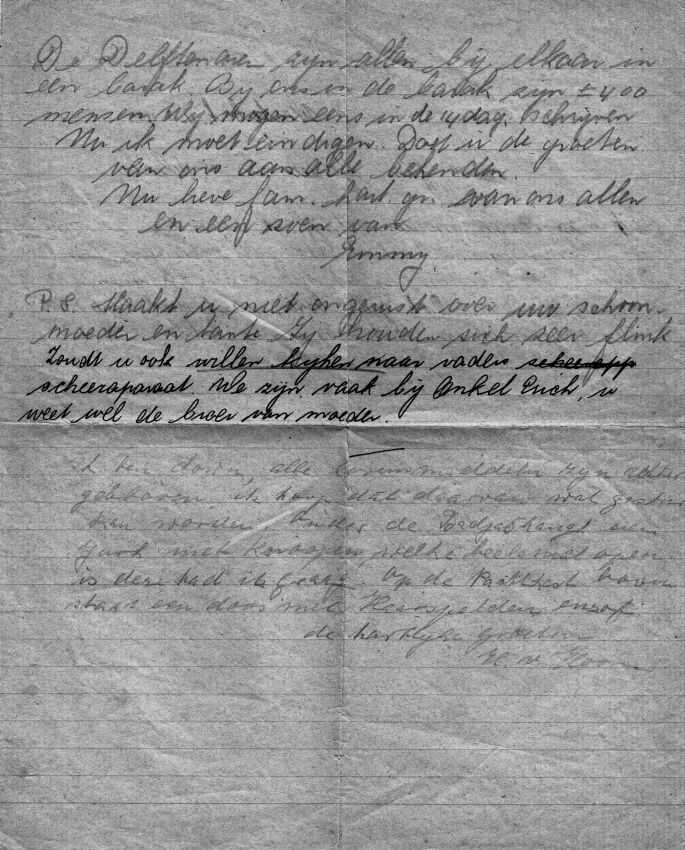 De Delftenaren zijn allen bij elkaar in
een barak. Bij ons in de barak zijn ± 400
mensen. Wij mogen eens in de 14 dag. schrijven
Nu ik moet eindigen. Doet u de groeten
van ons aan alle bekenden.
Nu lieve fam. hart. gr. van ons allen
en een zoen van
Emmy.
P.S. Maakt u niet ongerust over uw schoon
moeder en tante Zij houden zich zeer flink
Zoudt u ook willen kijken naar vaders
scheeraparaat. We zijn vaak bij onkel Such, u
weet wel de broer van moeder.
Ik ben alle levensmiddelen zijn achter
gebleven ik hoop dat daarvan wat
kan worden onder de hangt een
jurk met knoopen, welke
is deze had ik graag. Op de boven
staat een doos met Haarspelden enzof
de hartelijke groeten